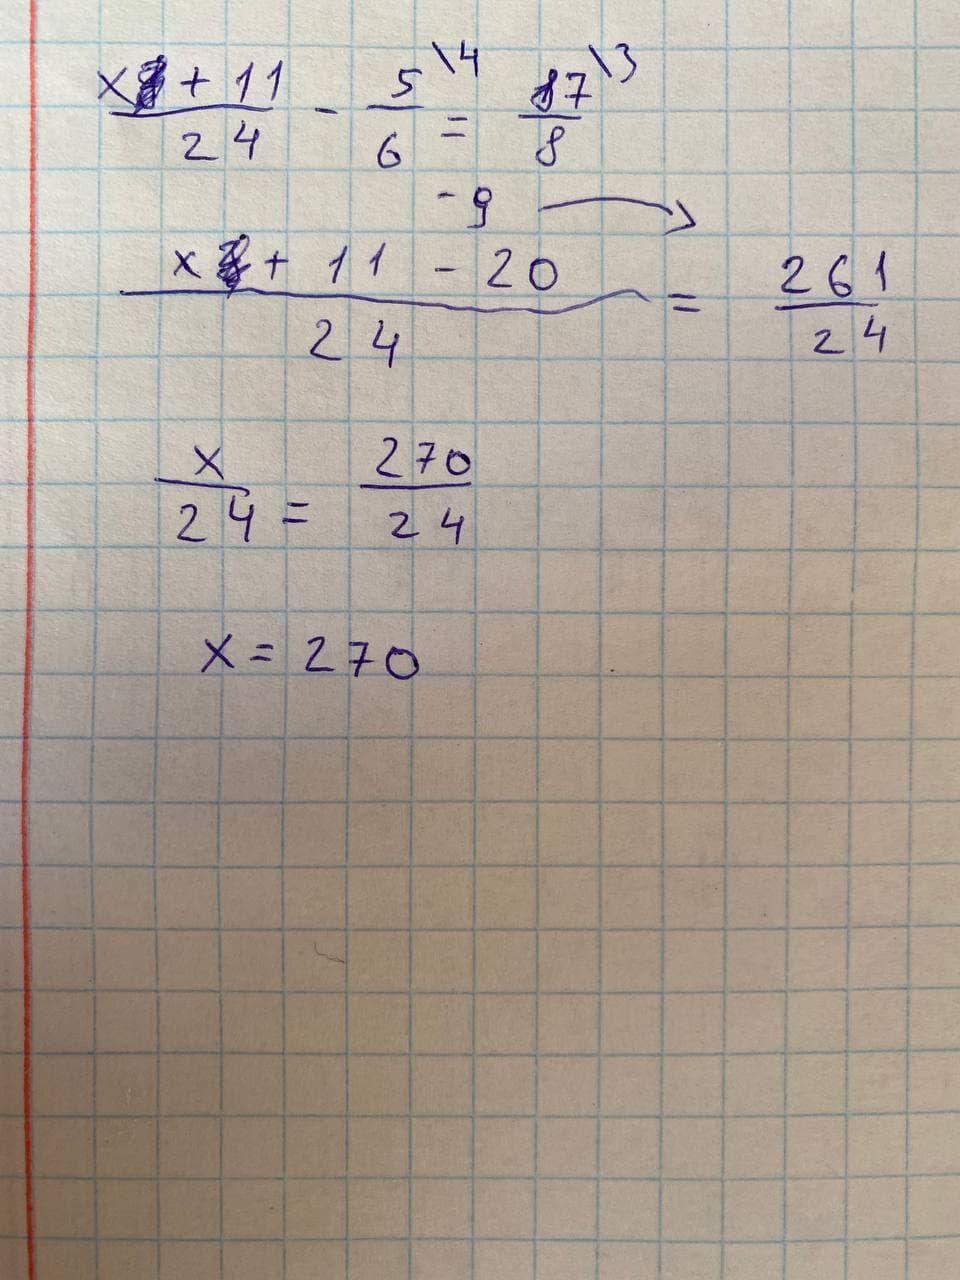 x + 11 / 24 - 5\4 / 6 = 87\3 / 8
- 9
x + 11 - 20 / 24 = 261 / 24
x / 24 = 270 / 24
x = 270